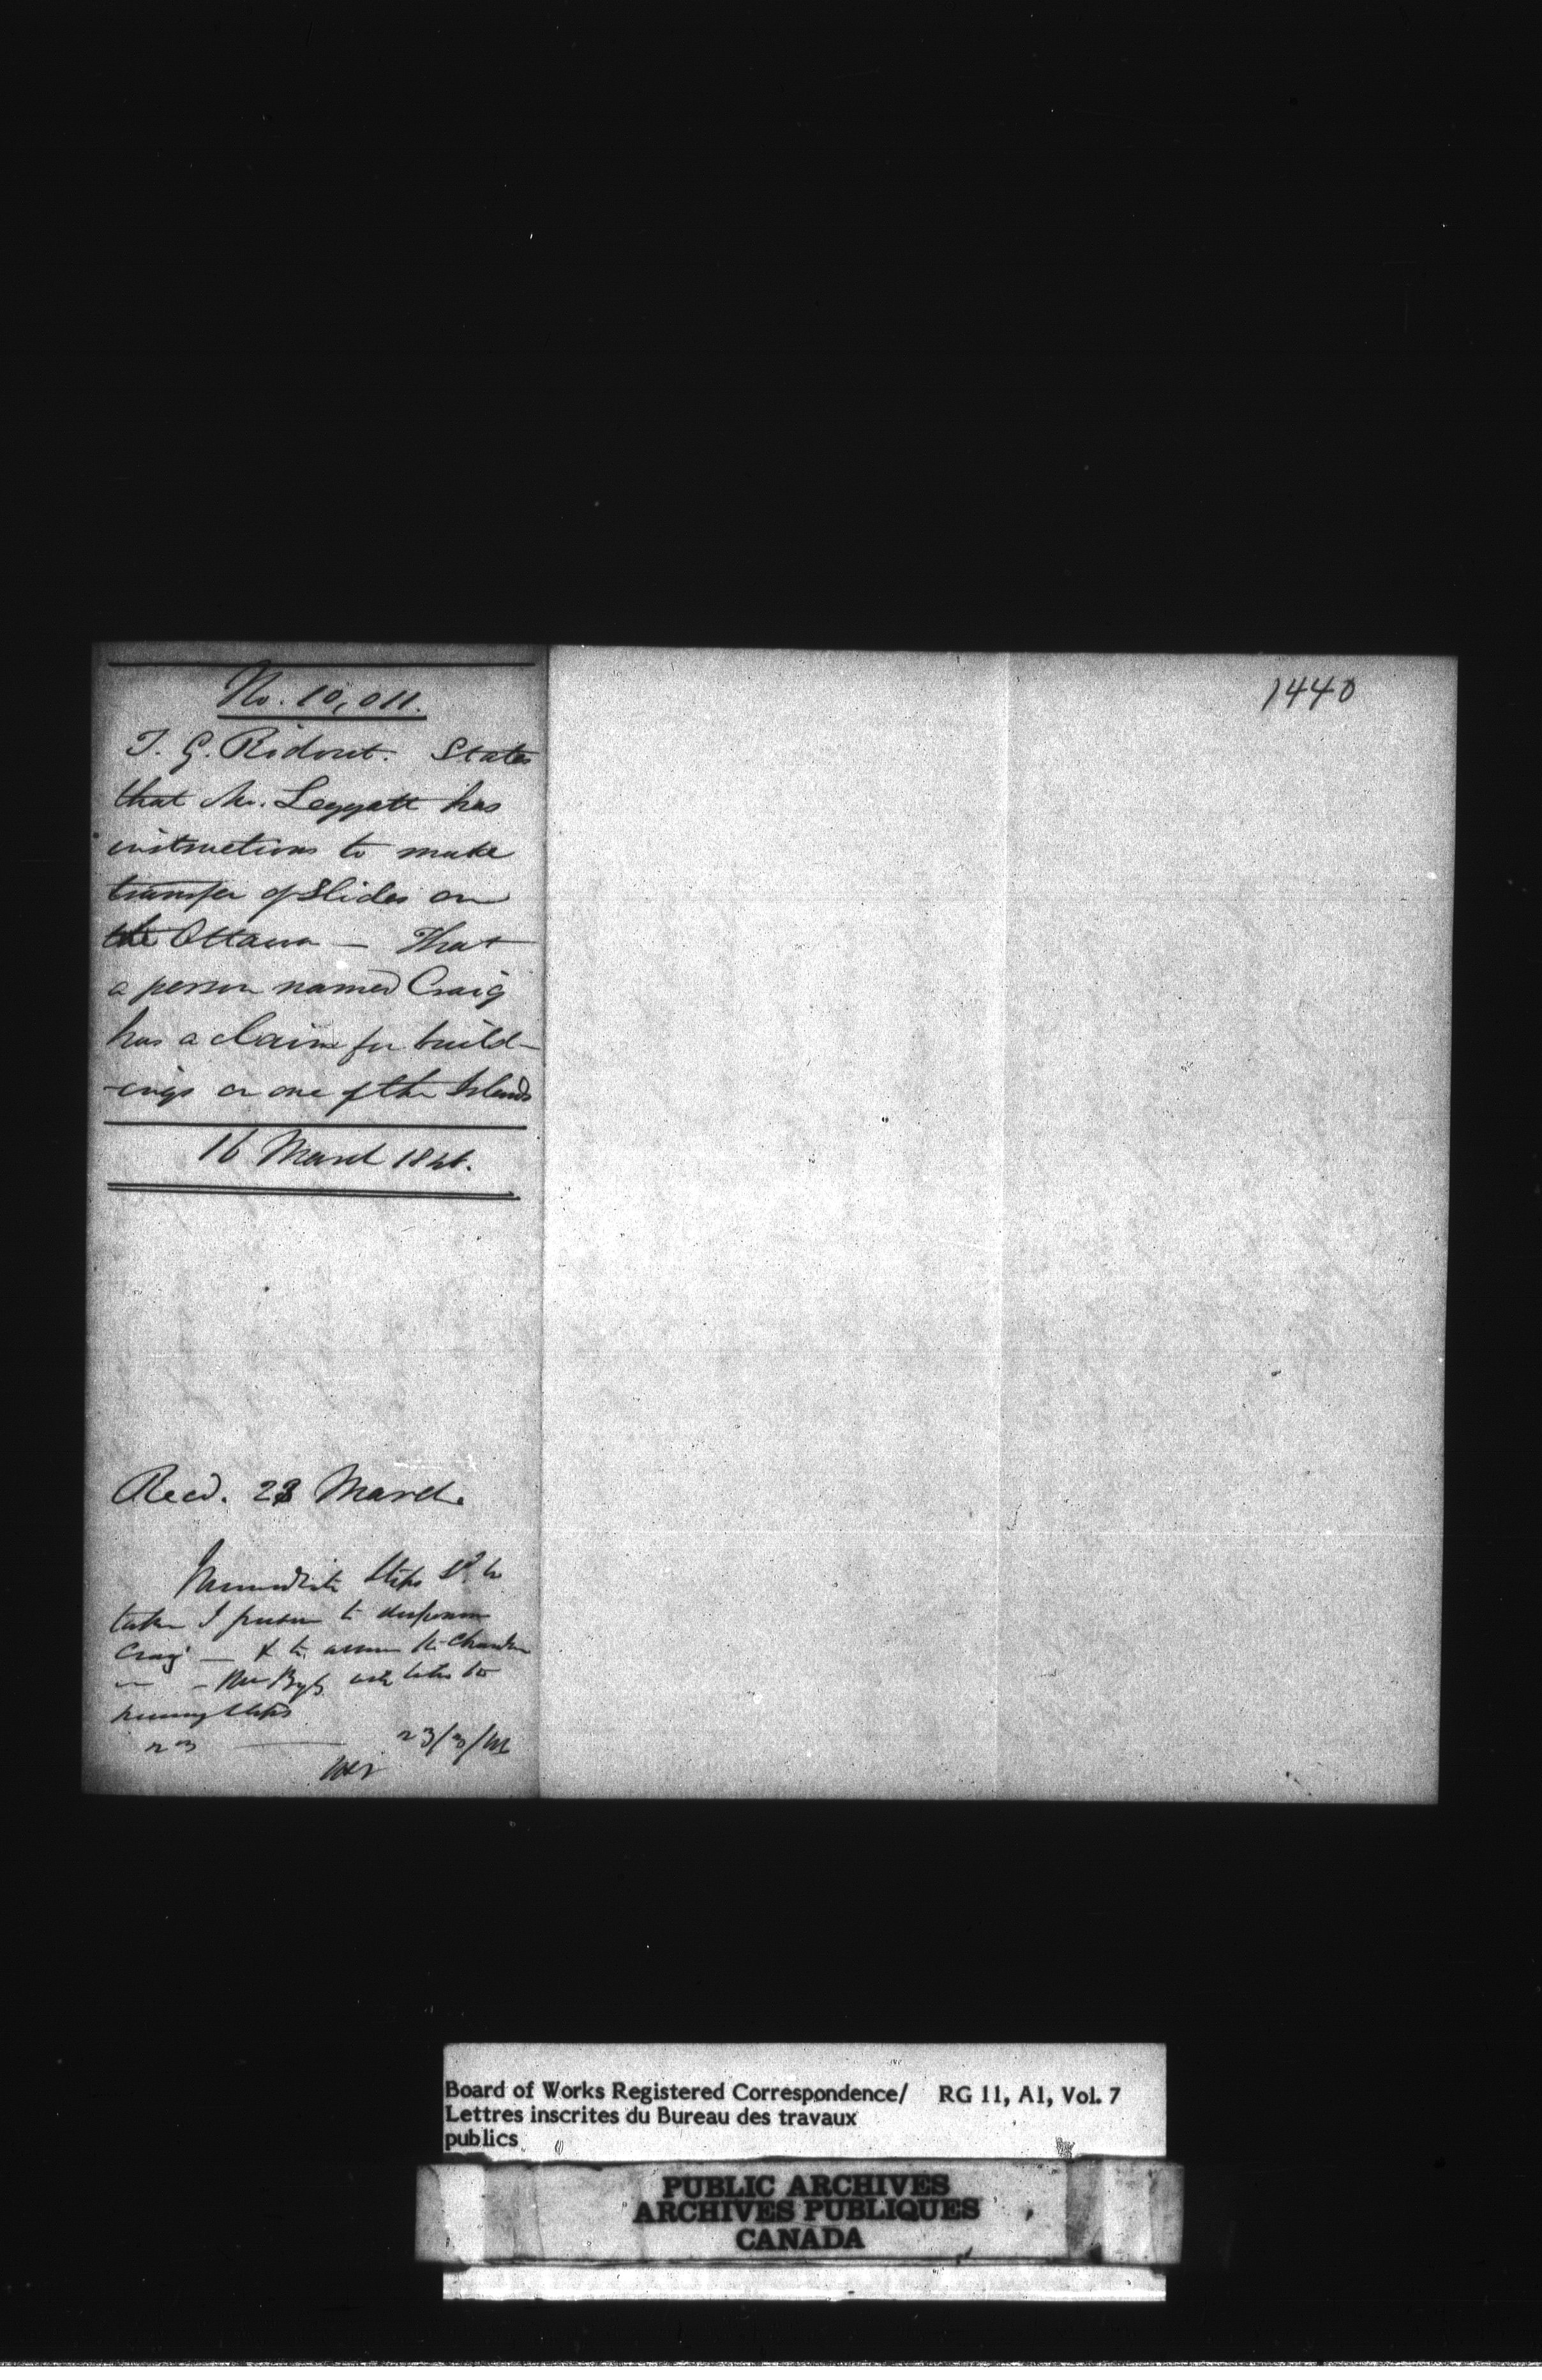 No. 10,011.
T. G. Ridout. States
that Mr. Leggatt has
instructions to make
transfer of Slides on
the Ottawa — That
a person named Craig
has a claim for build-
-ings on one of the Islands
16 March 1846.
Recd. 23 March.
Immediate Steps Sd. be
taken I presume to dispossess
Craig — & to assume the
necessary steps
23/3/46
1440
Board of Works Registered Correspondence/ RG 11, A1, Vol. 7
Lettres inscrites du Bureau des travaux
publics
PUBLIC ARCHIVES
ARCHIVES PUBLIQUES
CANADA